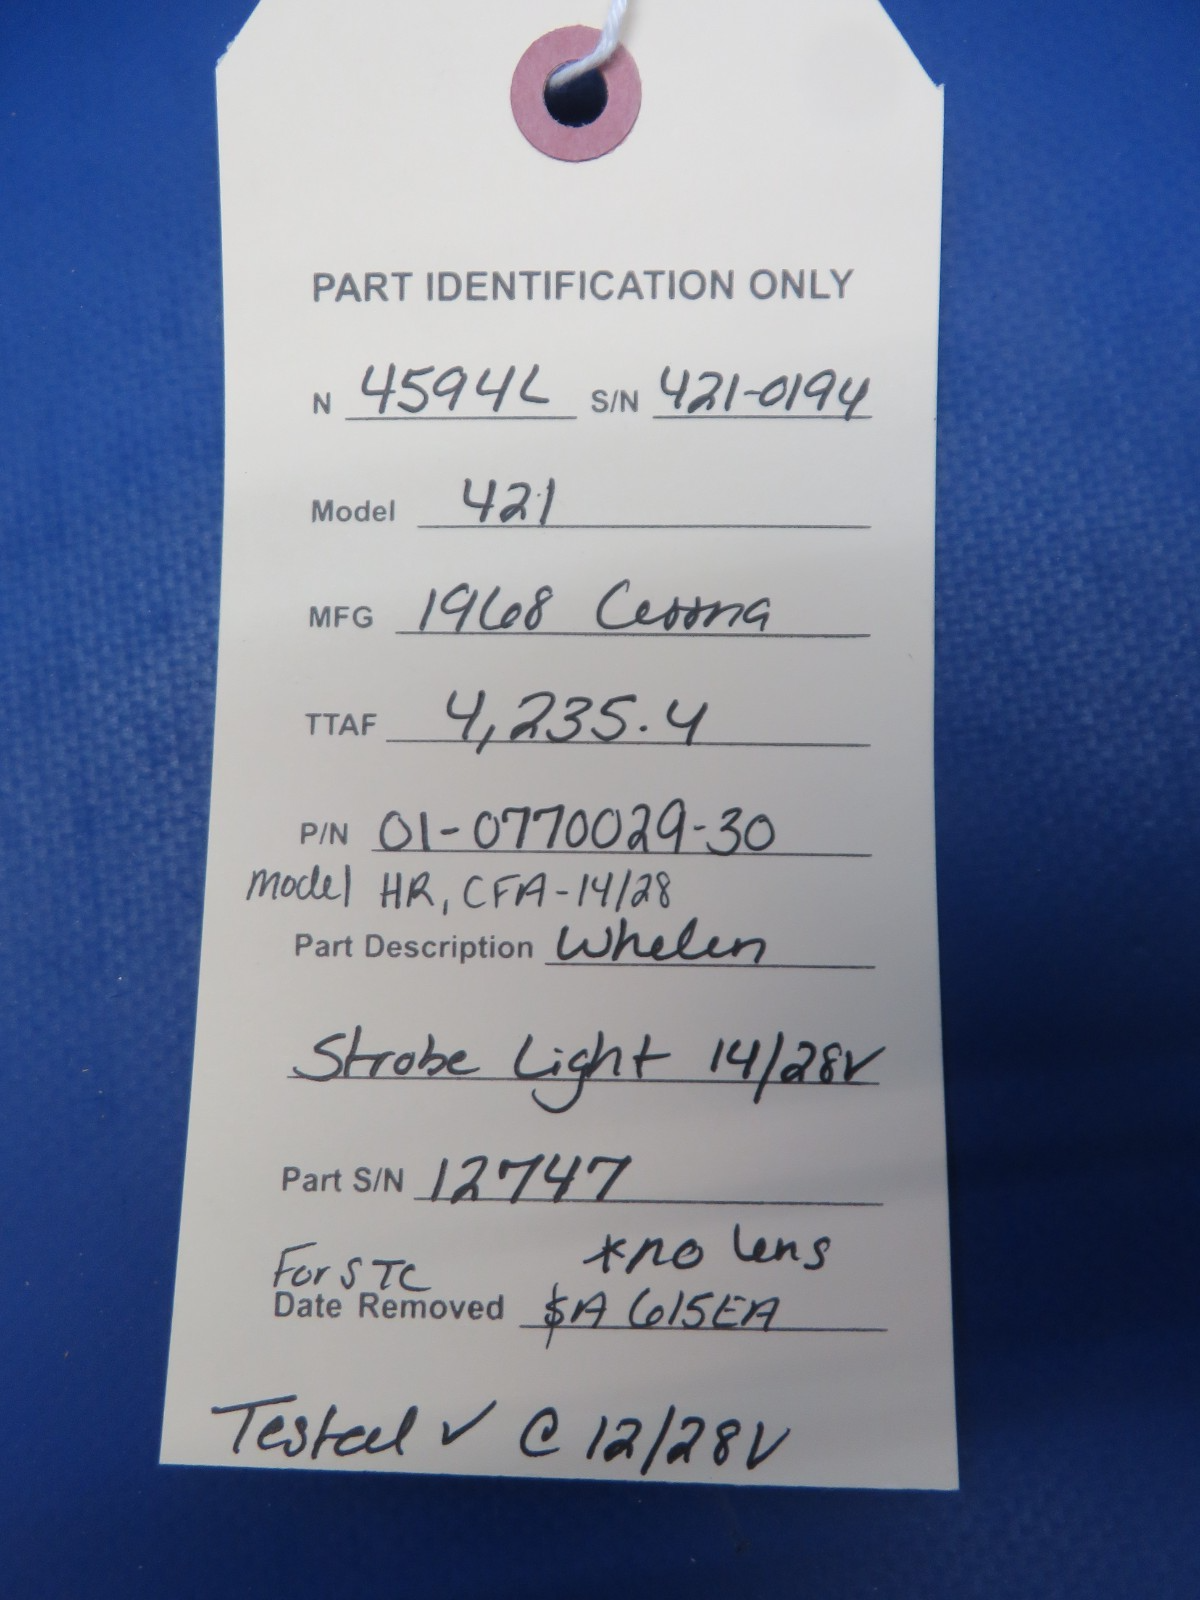 PART IDENTIFICATION ONLY
N 4594L S/N 421-0194
Model 421
MFG 1968 Cessna
TTAF 4,235.4
P/N 01-0770029-30
model HR, CFA-14/28
Part Description Whelen
Strobe Light 14/28V
Part S/N 12747
*no lens
For STC
Date Removed $A 615EA
Tested ✓ @ 12/28V